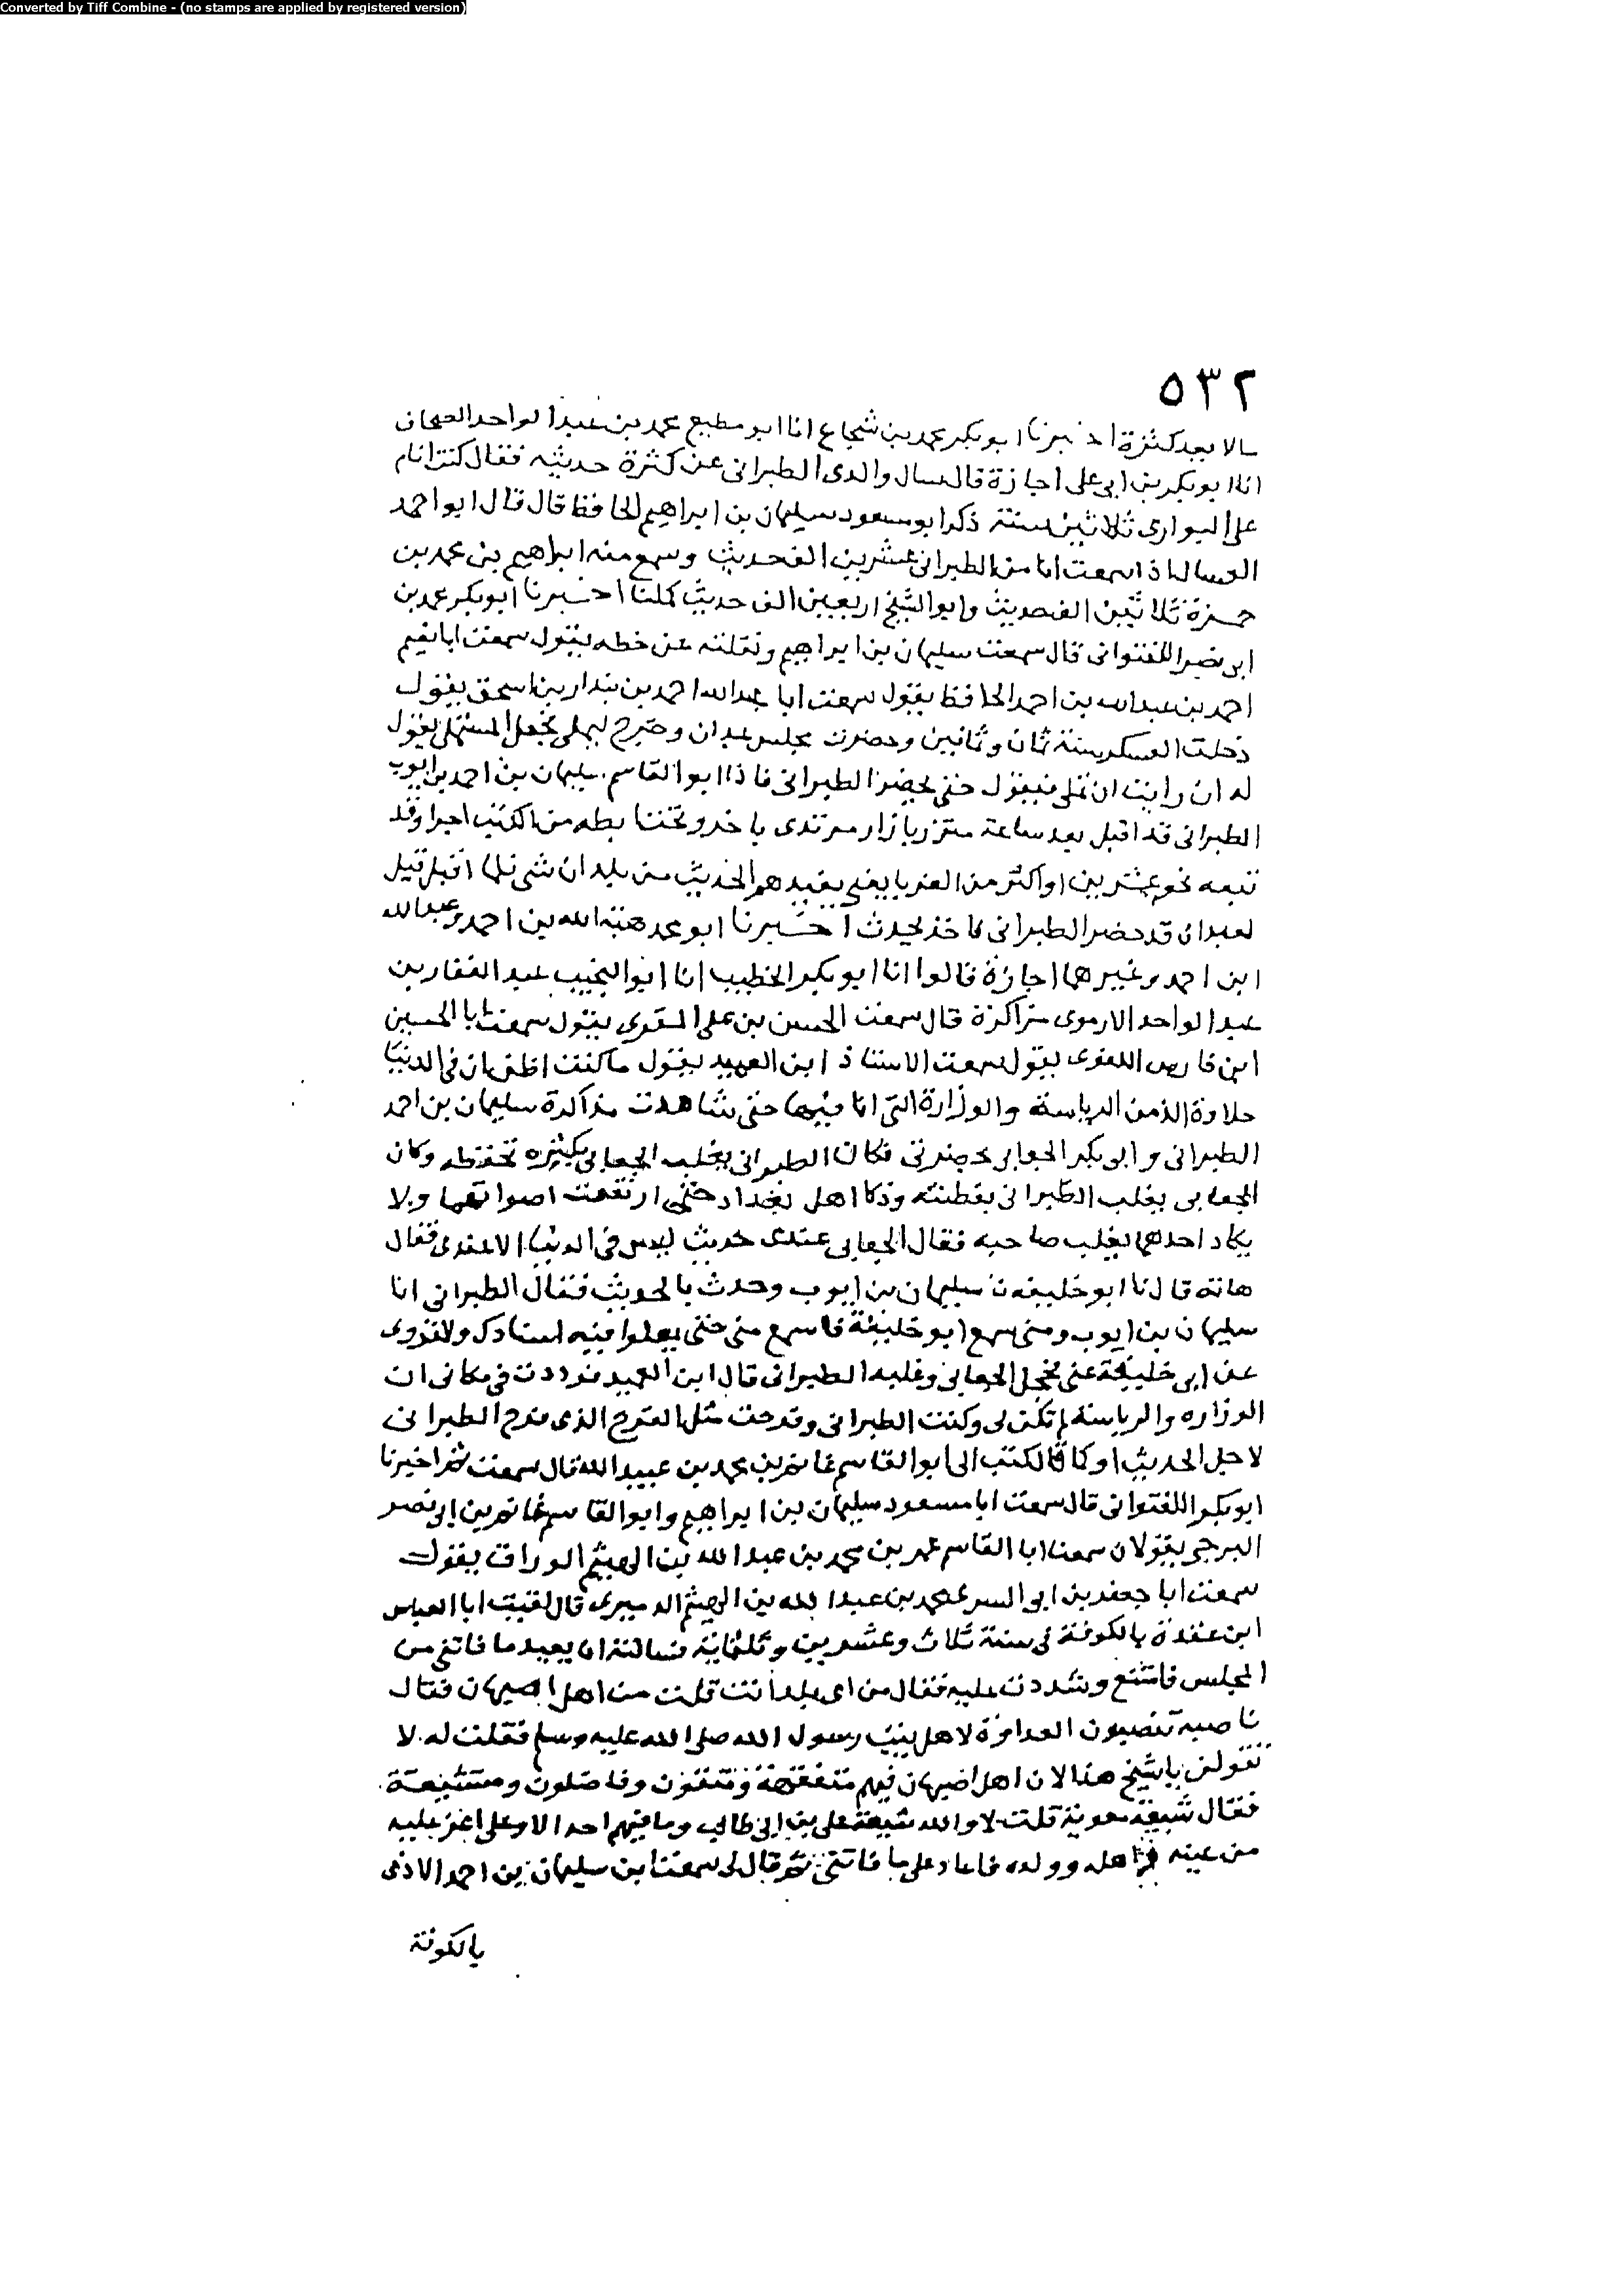 Converted by Tiff Combine - (no stamps are applied by registered version)
٥٣٢
مالا يعد كثرة اخبرنا ابو بكر محمد بن شجاع انا ابو مطيع محمد بن عبد الواحد الصحاف
انا ابو بكر بن ابى على اجازة قال سال والدى الطبرانى عن كثرة حديثه فقال كنت انام
على البوارى ثلاثين سنة ذكر ابو مسعود سليمان بن ابراهيم الحافظ قال قال ابو احمد
العسال اذا سمعت انا من الطبرانى عشرين الف حديث وسمع منه ابراهيم بن محمد بن
حمزة ثلاثين الف حديث وابو الشيخ اربعين الف حديث كملنا اخبرنا ابو بكر محمد بن
ابى نصر اللفتوانى قال سمعت سليمان بن ابراهيم ونقلته عن خطه يقول سمعت ابا نعيم
احمد بن عبد الله بن احمد الحافظ يقول سمعت ابا عبد الله احمد بن بندار بن اسحق يقول
دخلت العسكر سنة ثمان وثمانين وحضرت مجلس عبدان وخرج ليملى فجعل المستملى يقول
له ان رايت ان تملى فيقول حتى يحضر الطبرانى فاذا ابو القاسم سليمان بن احمد بن ايوب
الطبرانى قد اقبل بعد ساعة متزر بازار مرتدى باخر وتحت ابطه من الكتب اجزا وقد
تبعه نحو عشرين او اكثر من الغربا يعنى يفيدهم الحديث من بلدان شتى فلما اقبل قيل
لعبدان قد حضر الطبرانى فاخذ يحدث اخبرنا ابو محمد هبة الله بن احمد وعبد الله
ابن احمد وغيرهما اجازة قالوا انا ابو بكر الخطيب انا ابو النجيب عبد الغفار بن
عبد الواحد الارموى مذاكرة قال سمعت الحسن بن على المقرى يقول سمعت ابا الحسين
ابن فارس اللغوى يقول سمعت الاستاذ ابن العميد يقول ما كنت اظن ان فى الدنيا
حلاوة الذ من الرياسة والوزارة التى انا فيها حتى شاهدت مذاكرة سليمان بن احمد
الطبرانى وابو بكر الجعابى بحضرتى فكان الطبرانى يغلب الجعابى بكثره تحفظه وكان
الجعابى يغلب الطبرانى بفطنته وذكا اهل بغداد حتى ارتفعت اصواتهما ولا
يكاد احدهما يغلب صاحبه فقال الجعابى عندى حديث ليس فى الدنيا الا عندى فقال
هاته قال نا ابو خليفه نا سليمان بن ايوب وحدث بالحديث فقال الطبرانى انا
سليمان بن ايوب ومنى سمع ابو خليفة فاسمع منى حتى يعلوا فيه اسنادك ولا تروى
عن ابى خليفة عنى فخجل الجعابى وغلبه الطبرانى قال ابن العميد فوددت فى مكانى ان
الوزاره والرياسة لم تكن لى وكنت الطبرانى وفرحت مثل الفرح الذى فرح الطبرانى
لاجل الحديث او كما قال كتب الى ابو القاسم غانم بن محمد بن عبيد الله قال سمعت ثم اخبرنا
ابو بكر اللفتوانى قال سمعت ابا مسعود سليمان بن ابراهيم وابو القاسم غانم بن ابى نصر
البرجى يقولان سمعنا ابا القاسم عمر بن محمد بن عبد الله بن الهيثم الوراق يقول
سمعت ابا جعفر بن ابى السر محمد بن عبد الله بن الهيثم قال لقيت ابا العباس
ابن عقدة بالكوفة فى سنة ثلاث وعشرين وثلثمائة فسالته ان يعيد ما فاتنى من
المجلس فامتنع وشددت عليه فقال من اى بلد انت قلت من اهل اصبهان فقال
ناصبه تنصبون العداوة لاهل بيت رسول الله صلى الله عليه وسلم فقلت له لا
تقولن يا شيخ هذا لان اهل اصبهان فيهم متفقهة ومتقون وفاضلون ومتشيعة
فقال شيعة معوية قلت لا والله شيعة على بن ابى طالب وما فيهم احد الا وعلى اعز عليه
من عينه واهله وولده فاعاد على ما فاتنى ثم قال لى سمعت ابن سليمان بن احمد
بالكوفة